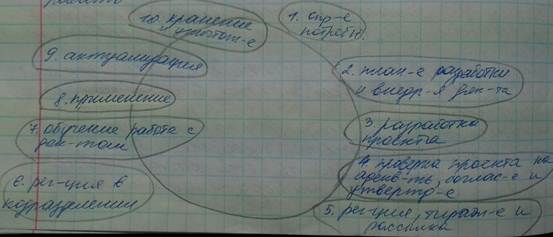 1. опр-е
потребн.
2. план-е разработки
и внедр-я док-та
3. разработка
проекта
4. проверка проекта на
адекв-ть, соглас-е и
утвержд-е
5. рег-ция, тираж-е и
рассылка
6. рег-ция в
подразделении
7. обучение работе с
док-том
8. применение
9. актуализация
10. хранение